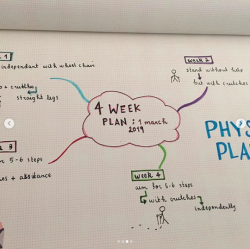 independent with wheel chair
straight legs
4 WEEK
PLAN : 1 march
2019
week 2
stand without help
but with crutches
PHYS
PLA
3
5-6 steps
+ assistance
week 4
aim for 5-6 steps
with crutches
independently